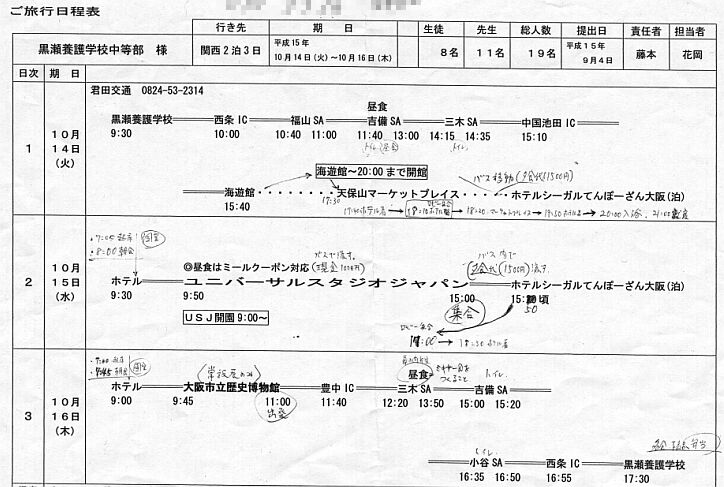 ご旅行日程表
行き先 期 日 生徒 先生 総人数 提出日 責任者 担当者
黒瀬養護学校中等部 様 関西2泊3日 平成15年 10月14日(火)~10月16日(木) 8名 11名 19名 平成15年 9月4日 藤本 花岡
日次 期 日
君田交通 0824-53-2314
1 10月14日(火)
昼食
黒瀬養護学校 西条IC 福山SA 吉備SA 三木SA 中国池田IC
9:30 10:00 10:40 11:00 11:40 13:00 14:15 14:35 15:10
トイレ 昼食 トイレ
海遊館~20:00まで開館
バス移動(夕食代1500円)
海遊館・・・・・・・・天保山マーケットプレイス・・・・・ホテルシーガルてんぽーざん大阪(泊)
15:40 17:30
2 10月15日(水)
8:00朝食
◎昼食はミールクーポン対応(現金1000円)
バスで渡す。
バス内で
夕食代(1500円)渡す。
ホテル ユニバーサルスタジオジャパン ホテルシーガルてんぽーざん大阪(泊)
9:30 9:50 15:00 頃
50
集合
USJ開園 9:00~
ロビー集合
3 10月16日(木)
(常設展のみ)
昼食
トイレ
ホテル 大阪市立歴史博物館 豊中IC 三木SA 吉備SA
9:00 9:45 11:00 11:40 12:20 13:50 15:00 15:20
出発
弁当
トイレ
小谷SA 西条IC 黒瀬養護学校
16:35 16:50 16:55 17:30